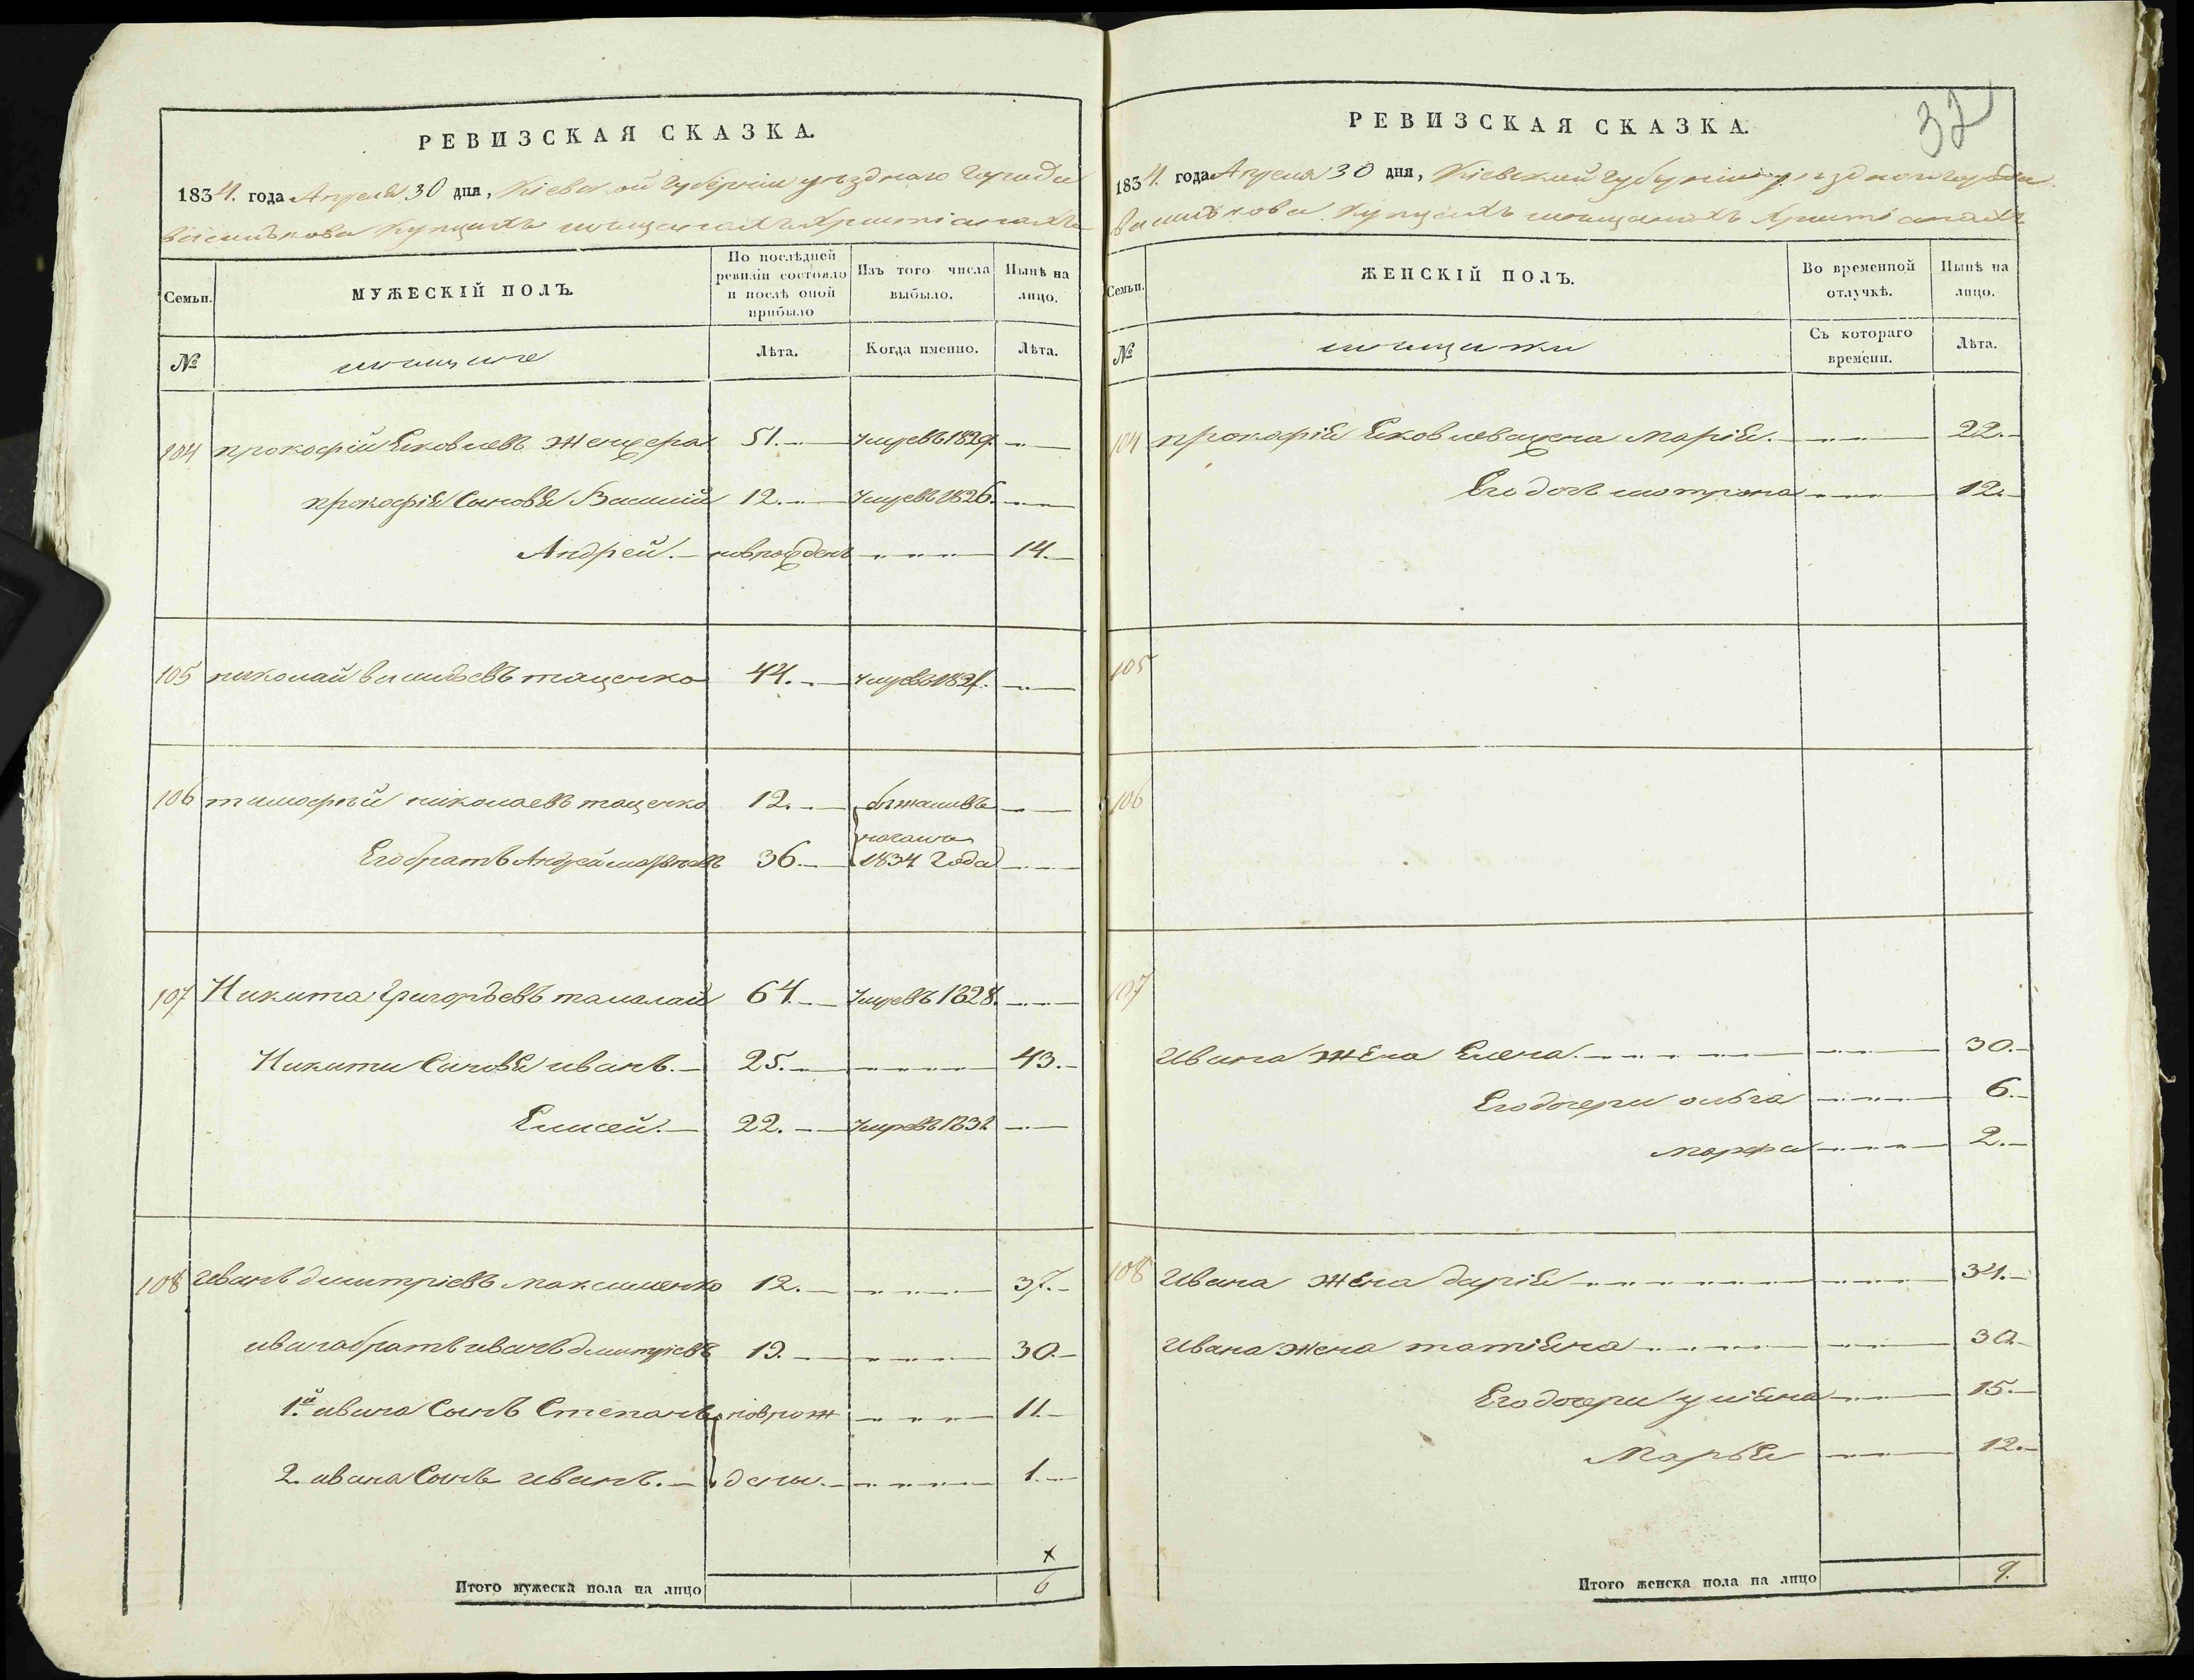 РЕВИЗСКАЯ СКАЗКА.
1834. года Апреля 30 дня, Кіевской Губерніи уѣзднаго города
Василькова Купцахъ мещанахъ Христіанахъ
Семьи. МУЖЕСКІЙ ПОЛЪ. По послѣдней ревизіи состояло и послѣ оной прибыло Изъ того числа выбыло. Нынѣ на лицо.
№ мещане Лѣта. Когда именно. Лѣта.
104 прокофій Яковлевъ 51. Умревъ 1829.
прокофія Сыновя Василий 12. Умревъ 1826.
Андрей. новрожденъ 14.
105 николай васильевъ таценко 44. Умревъ
106 тимофѣй николаевъ таценко 12. бѣжаливъ
началѣ
Его братъ Андрей 36. 1834 Года
107 Никита Григорьевъ тамалай 64. Умревъ 1828.
Никити Сыновя иванъ. 25. 43.
Елисей. 22. Умревъ 1832
108 Иванъ дмитріевъ максименко 12. 37.
ивана братъ иванъ дмитріевъ 19. 30.
1.й ивана Сынъ Степанъ новрож 11.
2. ивана Сынъ иванъ. дены. 1.
x
Итого мужеска пола на лицо 6
32
РЕВИЗСКАЯ СКАЗКА.
1834. года Апреля 30 дня, Кіевской Губерніи уѣзднаго города
Василькова Купцахъ мещанахъ Христіанахъ
Семьи. ЖЕНСКІЙ ПОЛЪ. Во временной отлучкѣ. Нынѣ на лицо.
№ мещанки Съ котораго времени. Лѣта.
104 прокофія Яковлева жена Марія. 22.
Его дочь мотрона 12.
105
106
107
Ивана жена Елена. 30.
Его дочери ольга 6.
марфа 2.
108 Ивана жена дарія 34.
Ивана жена татіяна 30.
Его дочери уліяна 15.
Марья 12.
Итого женска пола на лицо 9.